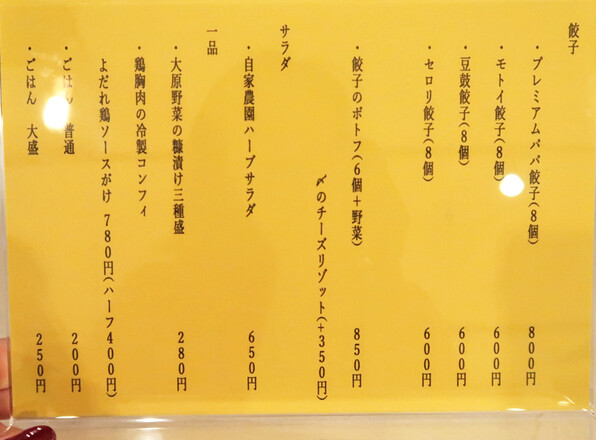 餃子
・プレミアムババ餃子(8個) 800円
・モトイ餃子(8個) 600円
・豆鼓餃子(8個) 600円
・セロリ餃子(8個) 600円
・餃子のポトフ(6個+野菜) 850円
〆のチーズリゾット(+350円)
サラダ
・自家農園ハーブサラダ 650円
一品
・大原野菜の糠漬け三種盛 280円
・鶏胸肉の冷製コンフィ
よだれ鶏ソースがけ 780円(ハーフ400円)
・ごはん 普通 200円
・ごはん 大盛 250円